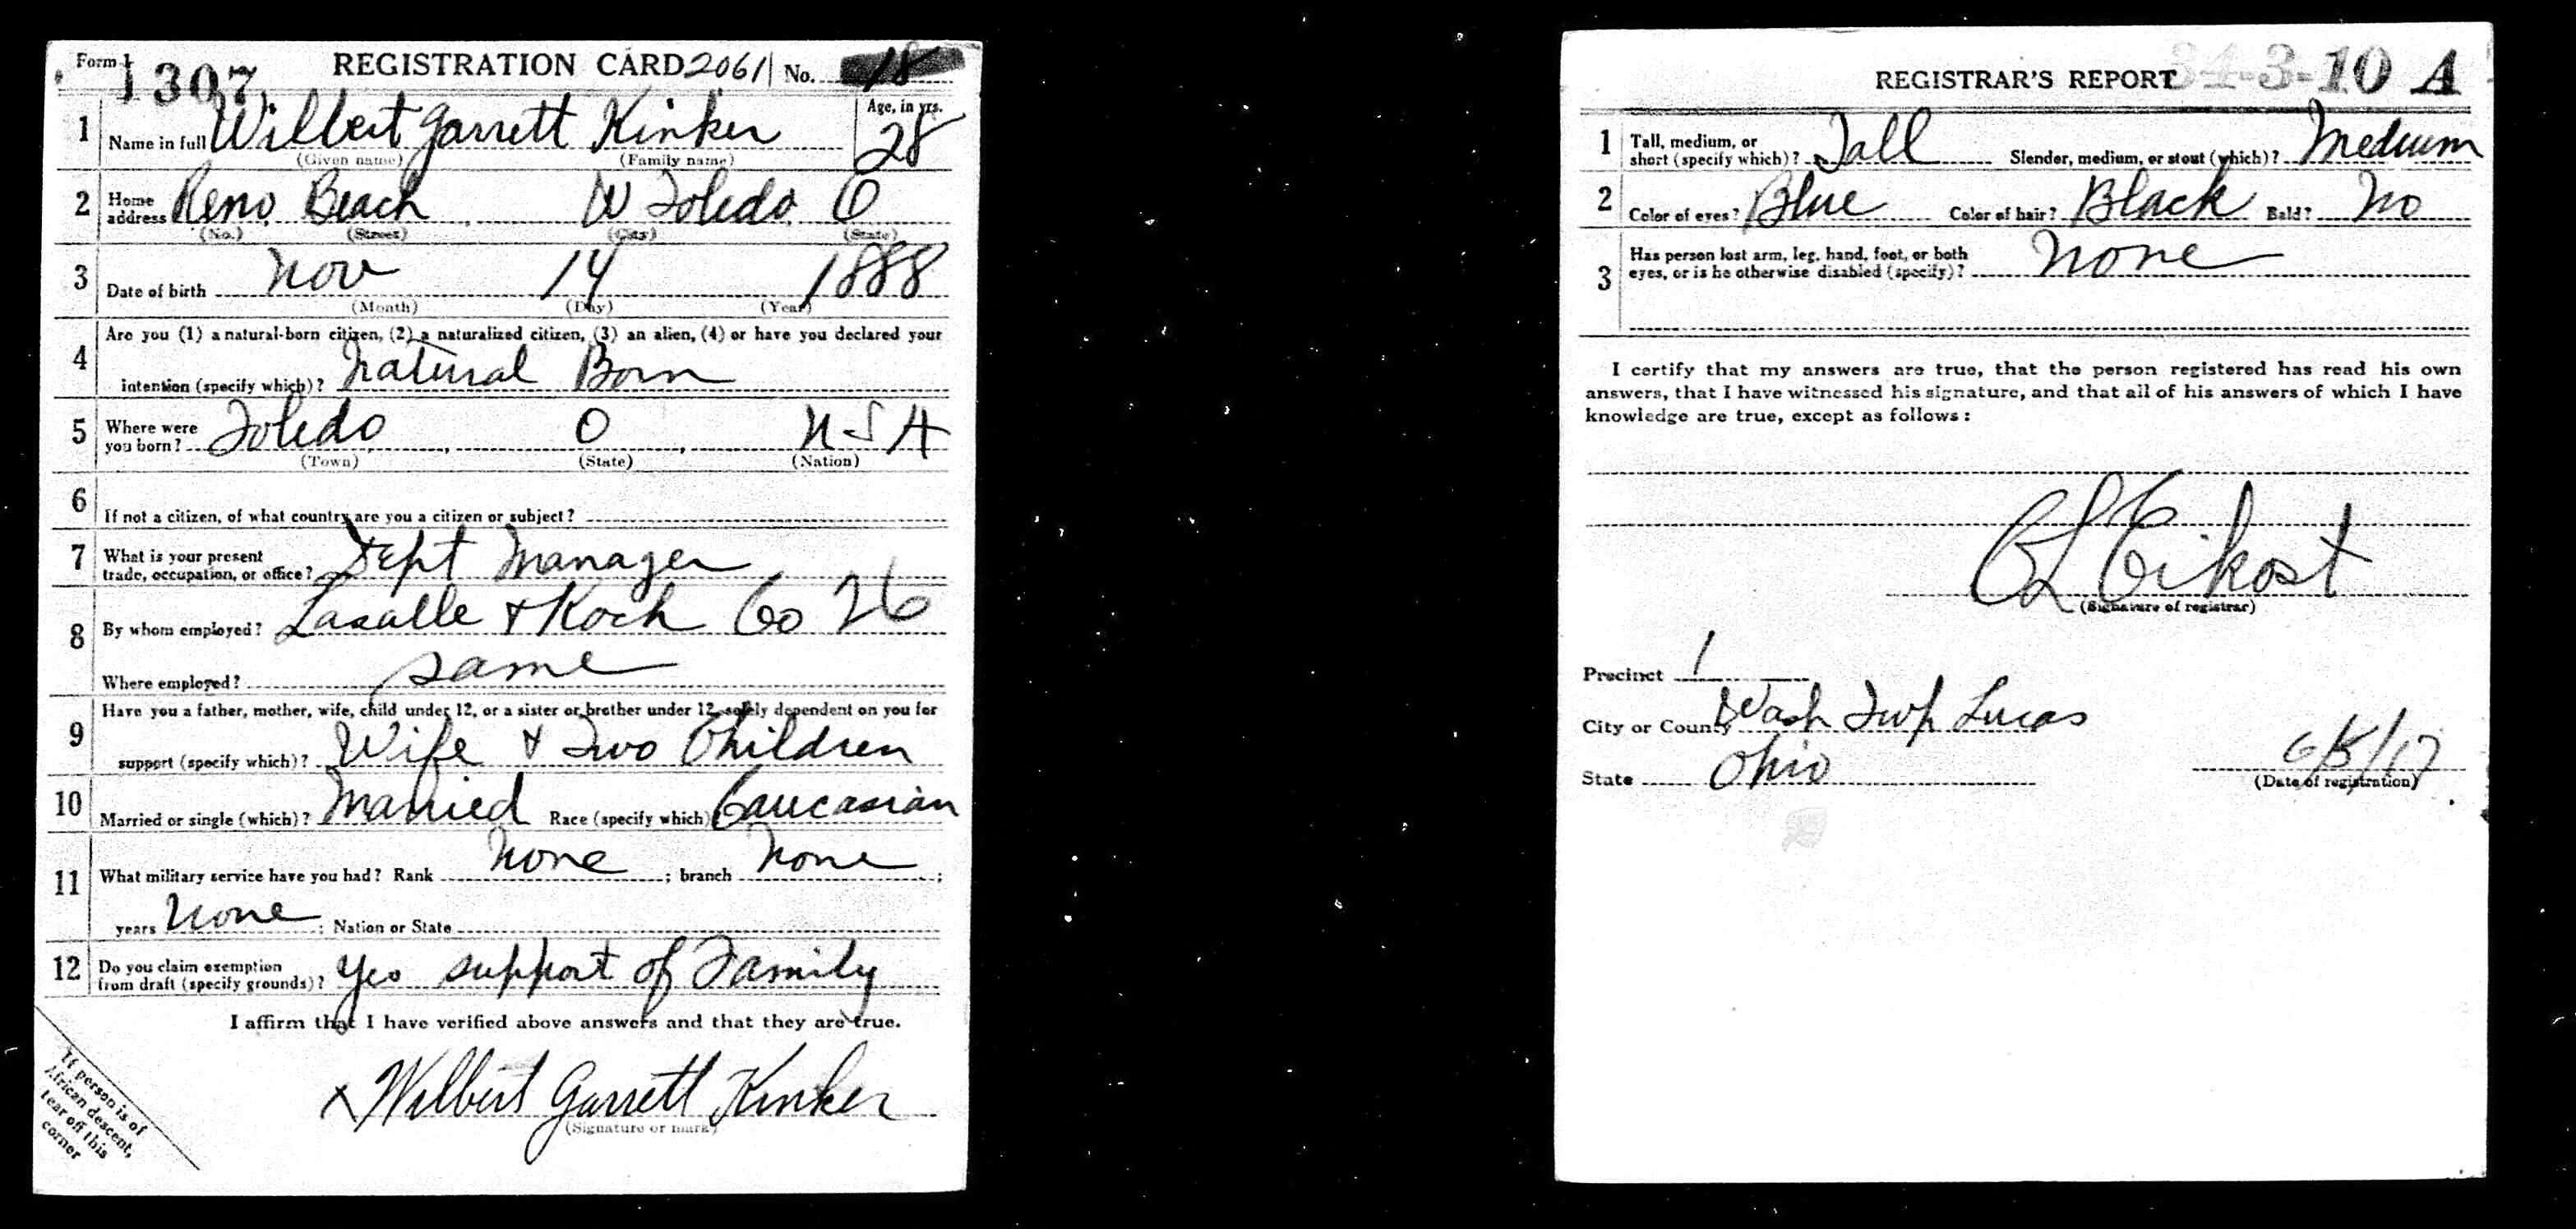 Form 1 1307 REGISTRATION CARD 2061 No. 18
1 Name in full Wilbert Garrett Kinker Age, in yrs. 28
(Given name) (Family name)
2 Home address Reno Beach W Toledo O
(No.) (Street) (City) (State)
3 Date of birth Nov 14 1888
(Month) (Day) (Year)
4 Are you (1) a natural-born citizen, (2) a naturalized citizen, (3) an alien, (4) or have you declared your
intention (specify which)? Natural Born
5 Where were you born? Toledo O USA
(Town) (State) (Nation)
6 If not a citizen, of what country are you a citizen or subject?
7 What is your present trade, occupation, or office? Dept Manager
8 By whom employed? Lasalle & Koch Co 26
Where employed? same
9 Have you a father, mother, wife, child under 12, or a sister or brother under 12, solely dependent on you for
support (specify which)? Wife & Two Children
10 Married or single (which)? Married Race (specify which) Caucasian
11 What military service have you had? Rank None ; branch None ;
years None ; Nation or State
12 Do you claim exemption from draft (specify grounds)? Yes support of Family
I affirm that I have verified above answers and that they are true.
x Wilbert Garrett Kinker
(Signature or mark)
If person is of
African descent,
tear off this
corner
REGISTRAR'S REPORT 34-3-10 A
1 Tall, medium, or short (specify which)? Tall Slender, medium, or stout (which)? Medium
2 Color of eyes? Blue Color of hair? Black Bald? No
3 Has person lost arm, leg, hand, foot, or both
eyes, or is he otherwise disabled (specify)? None
I certify that my answers are true, that the person registered has read his own
answers, that I have witnessed his signature, and that all of his answers of which I have
knowledge are true, except as follows:
(Signature of registrar)
Precinct 1
City or County Wash Twp Lucas
State Ohio 6/5/17
(Date of registration)